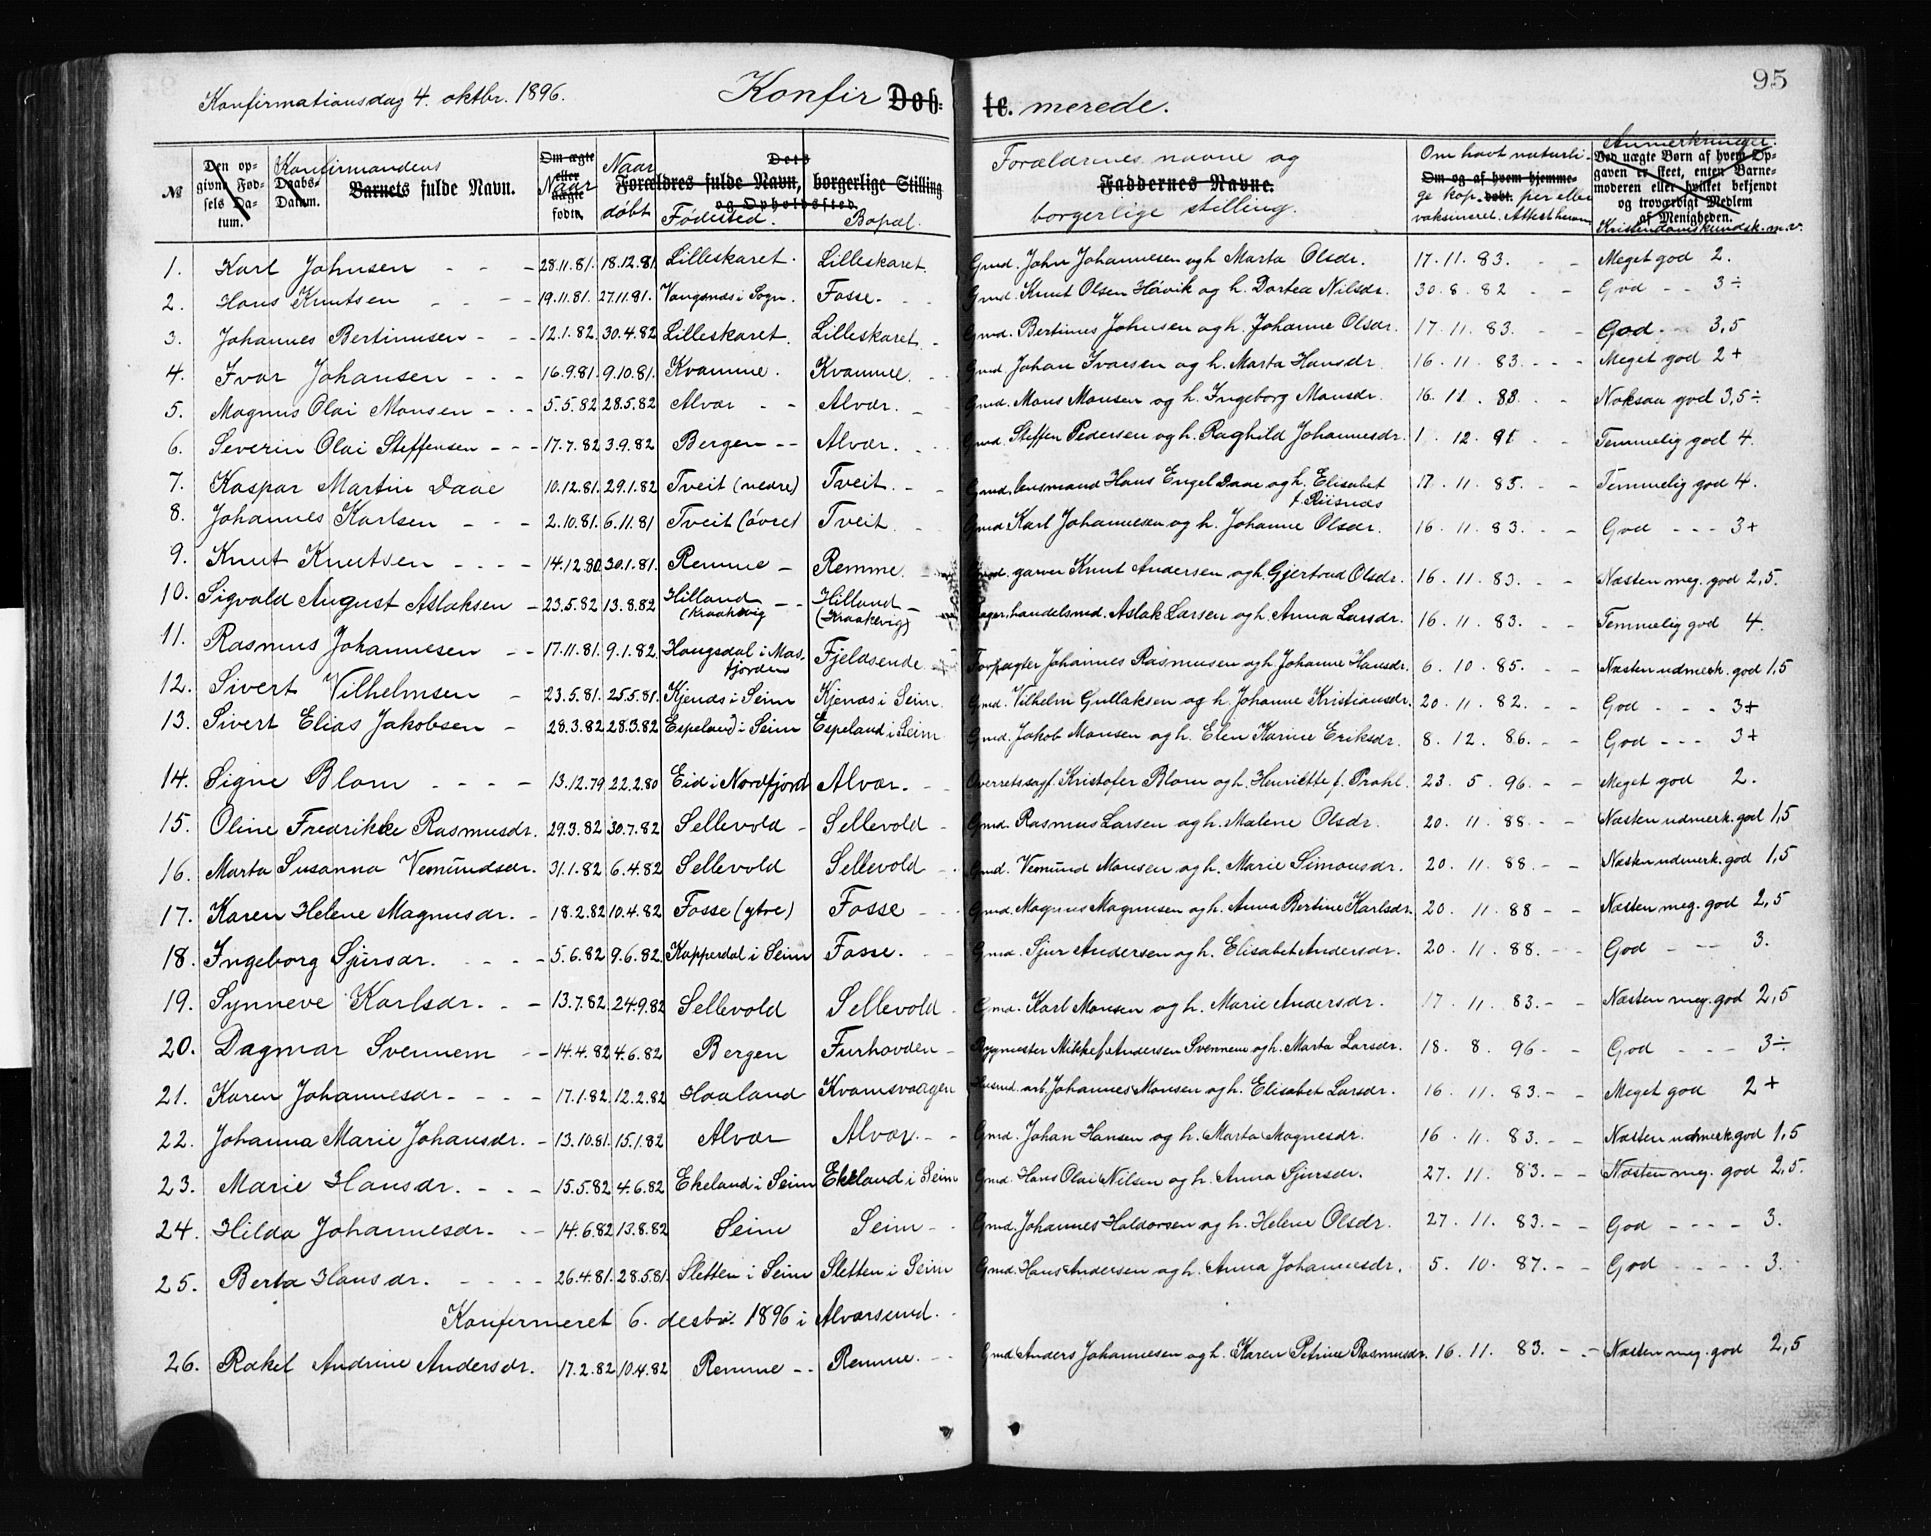 95
Konfirmationsdag 4. oktbr. 1896. Konfir Døb- te. merede.
№ Den opgivne Fødsels Datum. Daabs-Datum. Konfirmandens Barnets fulde Navn. Om ægte eller uægte Naar født. Naar døbt Dets Forældres fulde Navn, borgerlige Stilling og Opholdssted. Fødested. Bopæl. Forældrenes navne og Faddernes Navne. borgerlige stilling. Om havt naturlige kopper eller vaksineret. Attest herom Om og af hvem hjemmedøbt. Anmerkninger. Ved uægte Børn af hvem Opgaven er skeet, enten Barnemoderen eller hvilket bekjendt og troværdigt Medlem af Menigheden. Kristendomskundsk. m.v.
1. Karl Johnsen - - - 28.11.81. 18.12.81. Lilleskaret. Lilleskaret. Gmd. John Johannesen og h. Marta Olsdr. 17.11.83. - - Meget god 2.
2. Hans Knutsen - - - 19.11.81. 27.11.81. Vangsnes i Sogn. Fosse. - Gmd. Knut Olsen Høivik og h. Dortea Nilsdr. 30.8.82 - - God - - 3÷
3. Johannes Bertinusen - - - 12.1.82 30.4.82 Lilleskaret. Lilleskaret. - Gmd. Bertinus Johnsen og h. Johanne Olsdr. 17.11.83. - - God - 3,5
4. Ivar Johansen - - - 16.9.81. 9.10.81. Kvamme. Kvamme. - - Gmd. Johan Ivarsen og h. Marta Hansdr. 16.11.83. - - Meget god 2+
5. Magnus Olai Monsen - - - 5.5.82 28.5.82 Alvær - - Alvær. - Gmd. Mons Monsen og h. Ingeborg Monsdr. 16.11.83. - Noksaa god 3,5÷
6. Severin Olai Steffensen - - - 17.7.82 3.9.82 Bergen - - Alvær. - - Gmd. Steffen Pedersen og h. Raghild Johannesdr. 1.12.91 - - Temmelig god 4.
7. Kaspar Martin Daae 10.12.81. 29.1.82 Tveit (nedre) Tveit. - - Gmd. lensmand Hans Engel Daae og h. Elisabet f. Riisnæs 17.11.85. - - Temmelig god 4.
8. Johannes Karlsen - - - 2.10.81. 6.11.81 Tveit (øvre) Tveit. - Gmd Karl Johannesen og h. Johanne Olsdr. 16.11.83. - - God - - - 3+
9. Knut Knutsen - - - - 14.12.80 30.1.81. Remme - Remme. - Gmd. garver Knut Andersen og h. Gjertrud Olsdr. 16.11.83. - - Næsten meg. god 2,5.
10. Sigvald August Aslaksen - 23.5.82 13.8.82 Hilland (Kraakevig - - Hilland - (Kraakevig) handelsmd. Aslak Larsen og h. Anna Larsdr. 16.11.83. - - Temmelig god 4.
11. Rasmus Johannesen - - 17.11.81. 9.1.82 Haugsdal i Masfjorden Fjeldsende Forpagter Johannes Rasmusen og h. Johanne Hansdr. 6.10.85. - - Næsten udmerk. god 1,5
12. Sivert Vilhelmsen - 23.5.81. 25.5.81. Kjenæs i Seim Kjenæs i Seim. Gmd. Vilhelm Gullaksen og h. Johanne Kristiansdr. 20.11.82. - - God - - - 3+
13. Sivert Elias Jakobsen - 28.3.82 28.3.82 Espeland i Seim Espeland i Seim Gmd. Jakob Monsen og h. Elen Karine Eriksdr. 8.12.86. - - God - - - 3+
14. Signe Blom - - - - 13.12.79 22.2.80 Eid i Nordfjord Alvær. - - Overretssagf. Kristofer Blom og h. Henriette f. Prahl. 23.5.96. - - Meget god 2.
15. Oline Fredrikke Rasmusdr. 29.3.82 30.7.82 Sellevold - Sellevold - Gmd. Rasmus Larsen og h. Malene Olsdr. 20.11.88. - - Næsten udmerk. god 1,5
16. Marta Susanna Vemundsdr. 31.1.82 6.4.82 Sellevold Sellevold - - Gmd. Vemund Monsen og h. Marie Simonsdr. 20.11.88. - - Næsten udmerk. god 1,5
17. Karen Helene Magnusdr. - 18.2.82 10.4.82 Fosse (ytre) Fosse - - Gmd. Magnus Magnusen og h. Anna Bertine Karlsdr. 20.11.88 - - Næsten meg. god 2,5
18. Ingeborg Sjursdr. - - - - 5.6.82 9.6.82. Kopperdal i Seim Fosse. - - Gmd. Sjur Andersen og h. Elisabet Andersdr. 20.11.88. - - God - - - 3.
19. Synneve Karlsdr. - - 13.7.82. 24.9.82 Sellevold Sellevold - Gmd. Karl Monsen og h. Marie Andersdr. 17.11.83. - - Næsten meg. god 2,5
20. Dagmar Svennem - - 14.4.82 4.6.82 Bergen Furhovden - Bygmester Mikkel Andersen Svennem og h. Marta Larsdr. 18.8.96 - - God - - - 3÷
21. Karen Johannesdr. - - - - 17.1.82 12.2.82 Haaland Kvamsvaagen Husmd. arb. Johannes Monsen og h. Elisabet Larsdr. 16.11.83. - - Meget god 2+
22. Johanna Marie Johansdr. - 13.10.81. 15.1.82 Alvær Alvær. - - Gmd. Johan Hansen og h. Marta Magnesdr. 16.11.83. - - Næsten udmerk god 1,5
23. Marie Hansdr. - - - 15.5.82 4.6.82 Ekeland i Seim Ekeland i Seim Gmd. Hans Olai Nilsen og h. Anna Sjursdr. 27.11.83. - - Næsten meg. god 2,5.
24. Hilda Johannesdr. - - 14.6.82 13.8.82 Seim Seim - - Gmd. Johannes Haldorsen og h. Helene Olsdr. 27.11.83. - - God - - - - 3.
25. Berta Hansdr. - - - - 26.4.81. 28.5.81. Sletten i Seim Sletten i Seim Gmd. Hans Andersen og h. Anna Johannesdr. 5.10.87. - - God - - - - 3.
Konfirmeret 6. desbr. 1896 i Alværsund. -
26. Rakel Andrine Andersdr. 17.2.82 10.4.82 Remme - - Remme. - - Gmd Anders Johannesen og h. Karen Petrine Rasmusdr. 16.11.83. - - Næsten meg. god 2,5